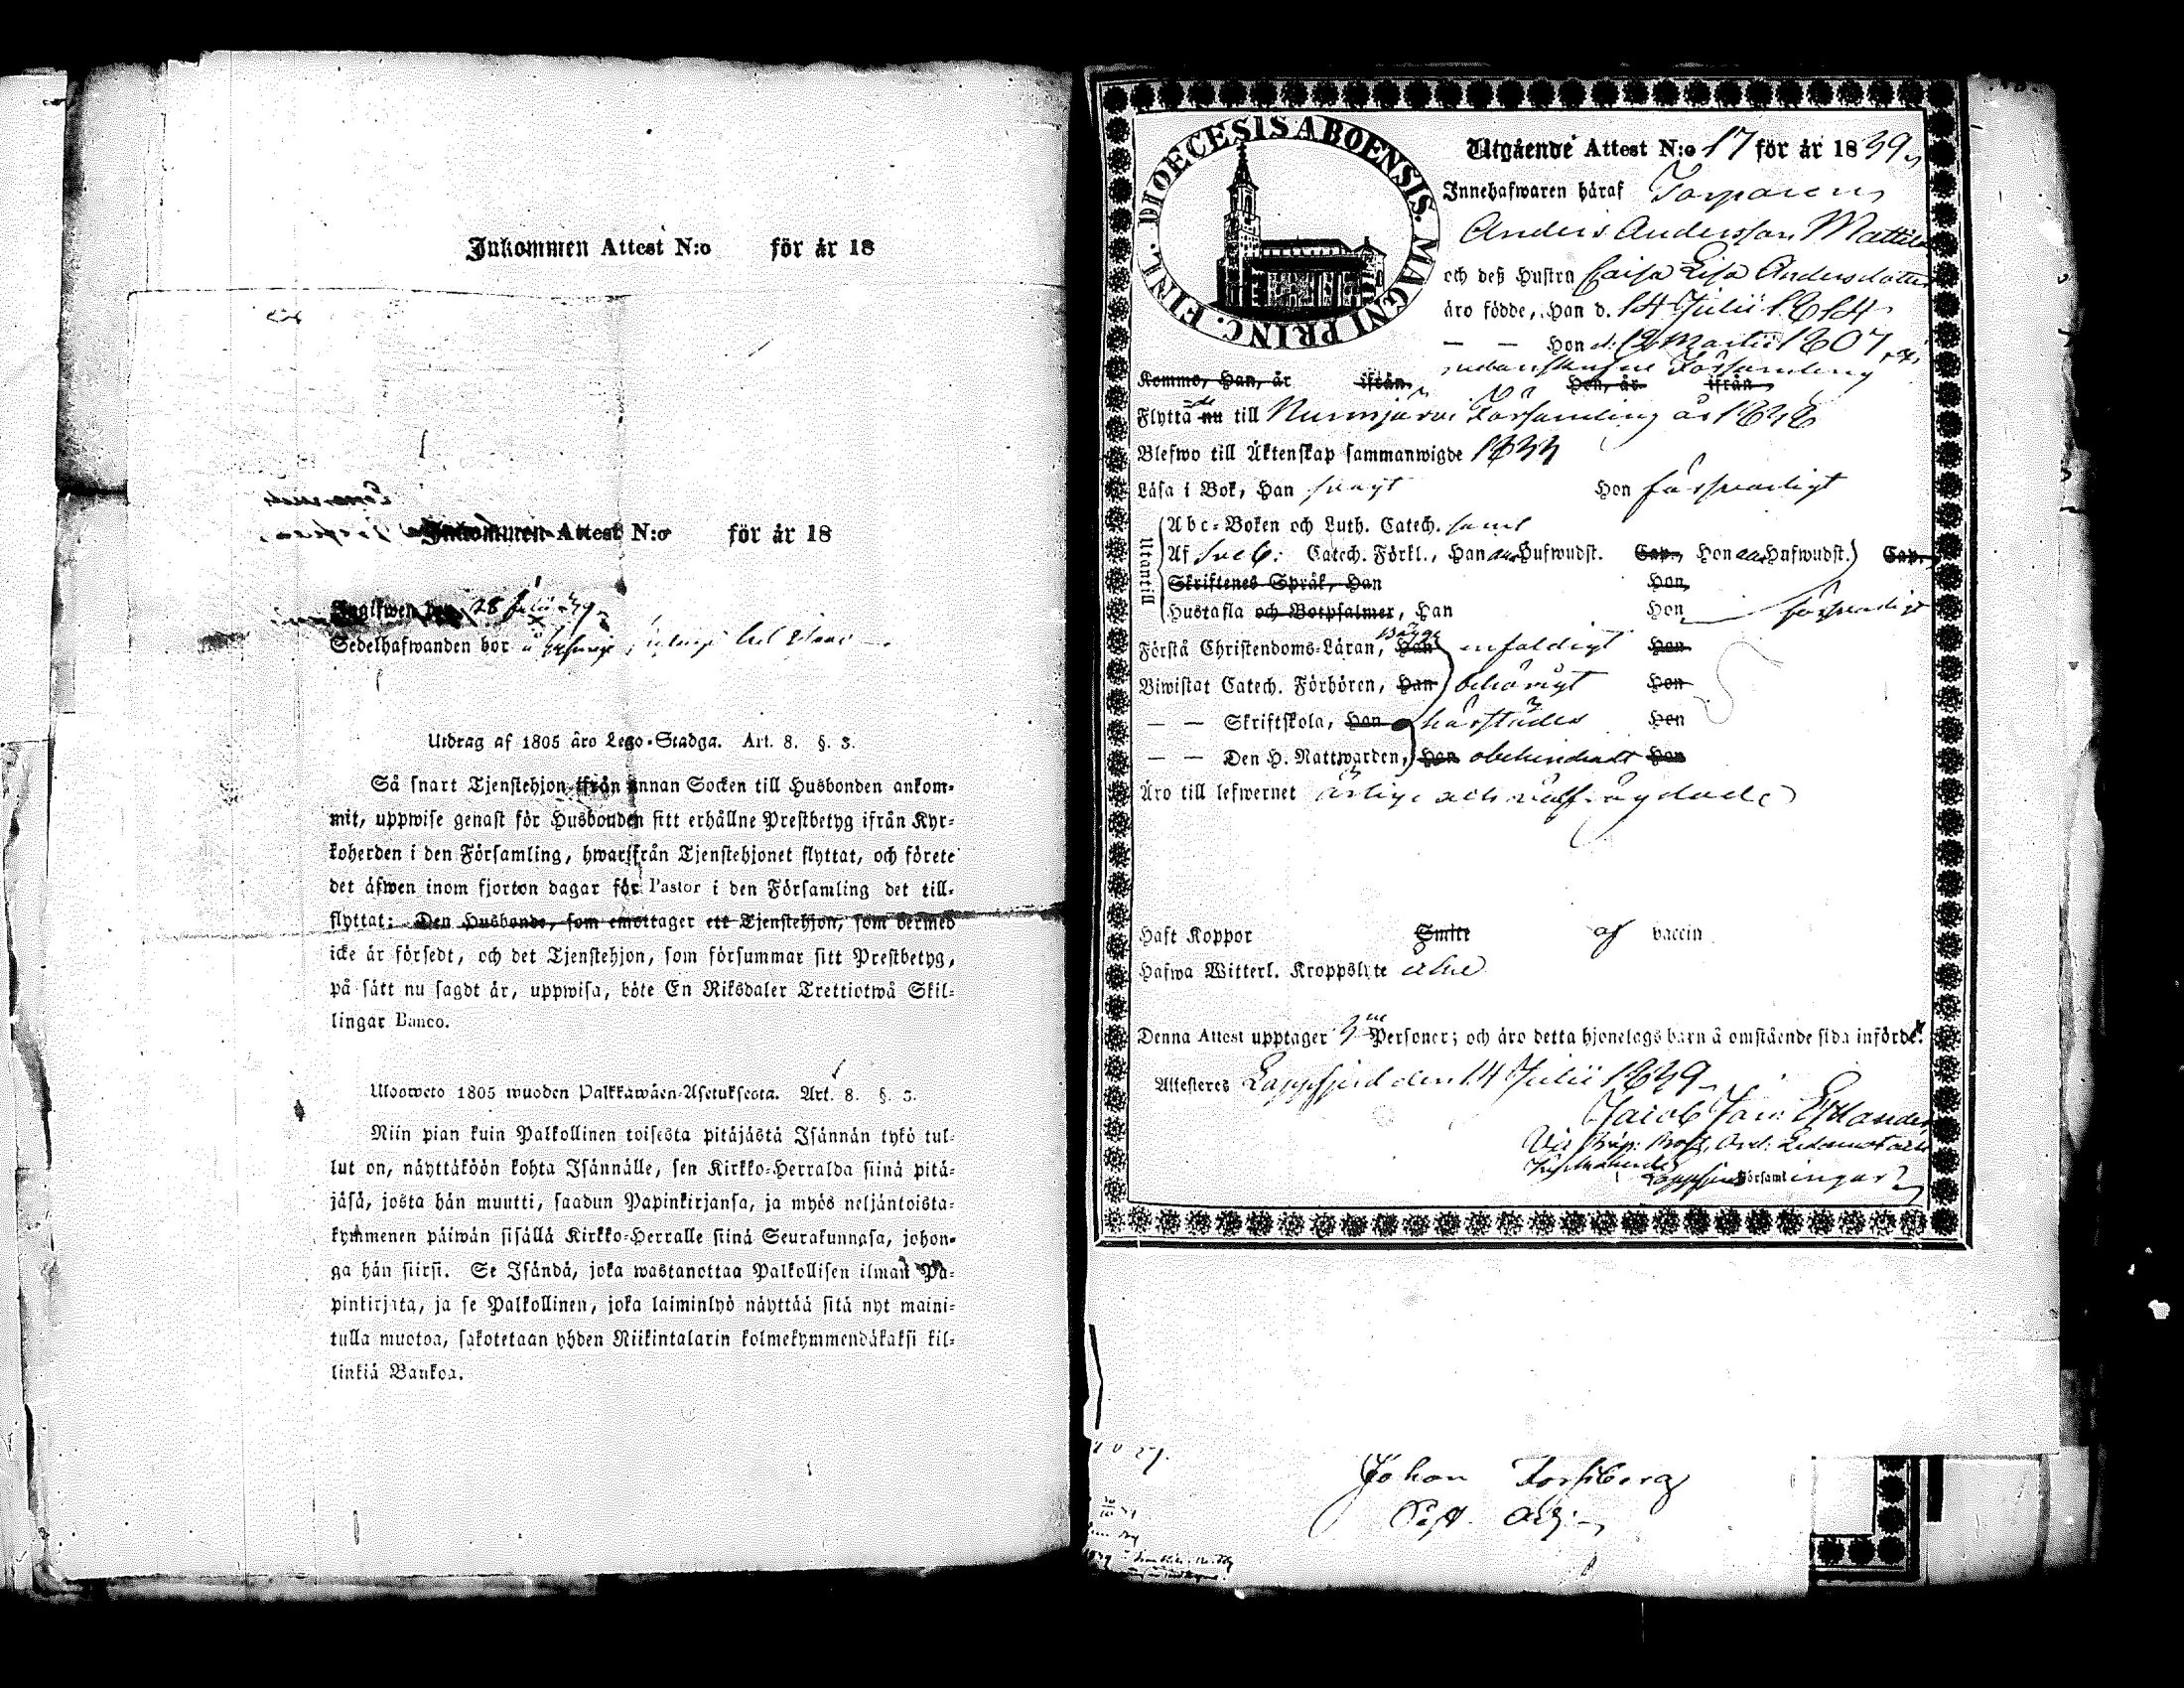 Inkommen Attest N:o för år 18
Inkommen Attest N:o för år 18
Angifwen den 28 Julii 39
Sedelhafwanden bor
Utdrag af 1805 års Lego-Stadga. Art. 8. §. 3.
Så snart Tjenstehjon ifrån annan Socken till Husbonden ankom-
mit, uppwise genast för Husbonden sitt erhållne Prestbetyg ifrån Kyr-
koherden i den Församling, hwarifrån Tjenstehjonet flyttat, och förete
det äfwen inom fjorton dagar för Pastor i den Församling det till-
flyttat: Den Husbonde, som emottager ett Tjenstehjon, som dermed
icke är försedt, och det Tjenstehjon, som försummar sitt Prestbetyg,
på sätt nu sagdt är, uppwisa, böte En Riksdaler Trettiotwå Skil-
lingar Banco.
Ulosweto 1805 wuoden Palkkawäen-Asetuksesta. Art. 8. §. 3.
Niin pian kuin Palkollinen toisesta pitäjästä Isännän tykö tul-
lut on, näyttäköön kohta Isännälle, sen Kirkko-Herralda siinä pitä-
jäsä, josta hän muutti, saadun Papinkirjansa, ja myös neljäntoista-
kymmenen päiwän sisällä Kirkko-Herralle siinä Seurakunnasa, johon-
ga hän siirsi. Se Isändä, joka wastanottaa Palkollisen ilman Pa-
pinkirjata, ja se Palkollinen, joka laiminlyö näyttää sitä nyt maini-
tulla muotoa, sakotetaan yhden Riikintalarin kolmekymmendäkaksi kil-
linkiä Bankoa.
FINL. DIOECESIS ABOENSIS. MAGNI PRINC.
Utgående Attest N:o 17 för år 1839
Innehafwaren häraf Torparen
Anders Andersson Mattila
och deß Hustru Caisa Lisa Andersdotter
äro födde, Han d. 14 Julii 1814
— — Hon d: 12 Martii 1807
Församling
Kommo, Han, år ifrån Hon, år ifrån
Flyttade nu till Nurmijärvi Församling år 1838
Blefwo till Äktenskap sammanwigde 1833
Läsa i Bok, Han swagt Hon försvarligt
Utantill
Abc-Boken och Luth. Catech. samt
Af Sveb: Catech. Förkl., Han Hufwudst. Cap., Hon Hufwudst. Cap.
Skriftenes Språk, Han Hon
Hustafla och Botpsalmer, Han Hon försvarligt
Förstå Christendoms-Läran, Han enfaldigt Hon
Biwistat Catech. Förhören, Han behörigt Hon
— — Skriftskola, Han härstädes Hon
— — Den H. Nattwarden, Han obehindradt Hon
Äro till lefwernet ärlige och välfrägdade
Haft Koppor Smitt af vaccin
Hafwa Witterl. Kroppslyte
Denna Attest upptager 3ne Personer; och äro detta hjonelags barn å omstående sida införde.
Attesteras Lappfjerd den 14 Julii 1839
Jacob Jan: Estlander
Församlingar
Johan Forssberg
Past. Adj.